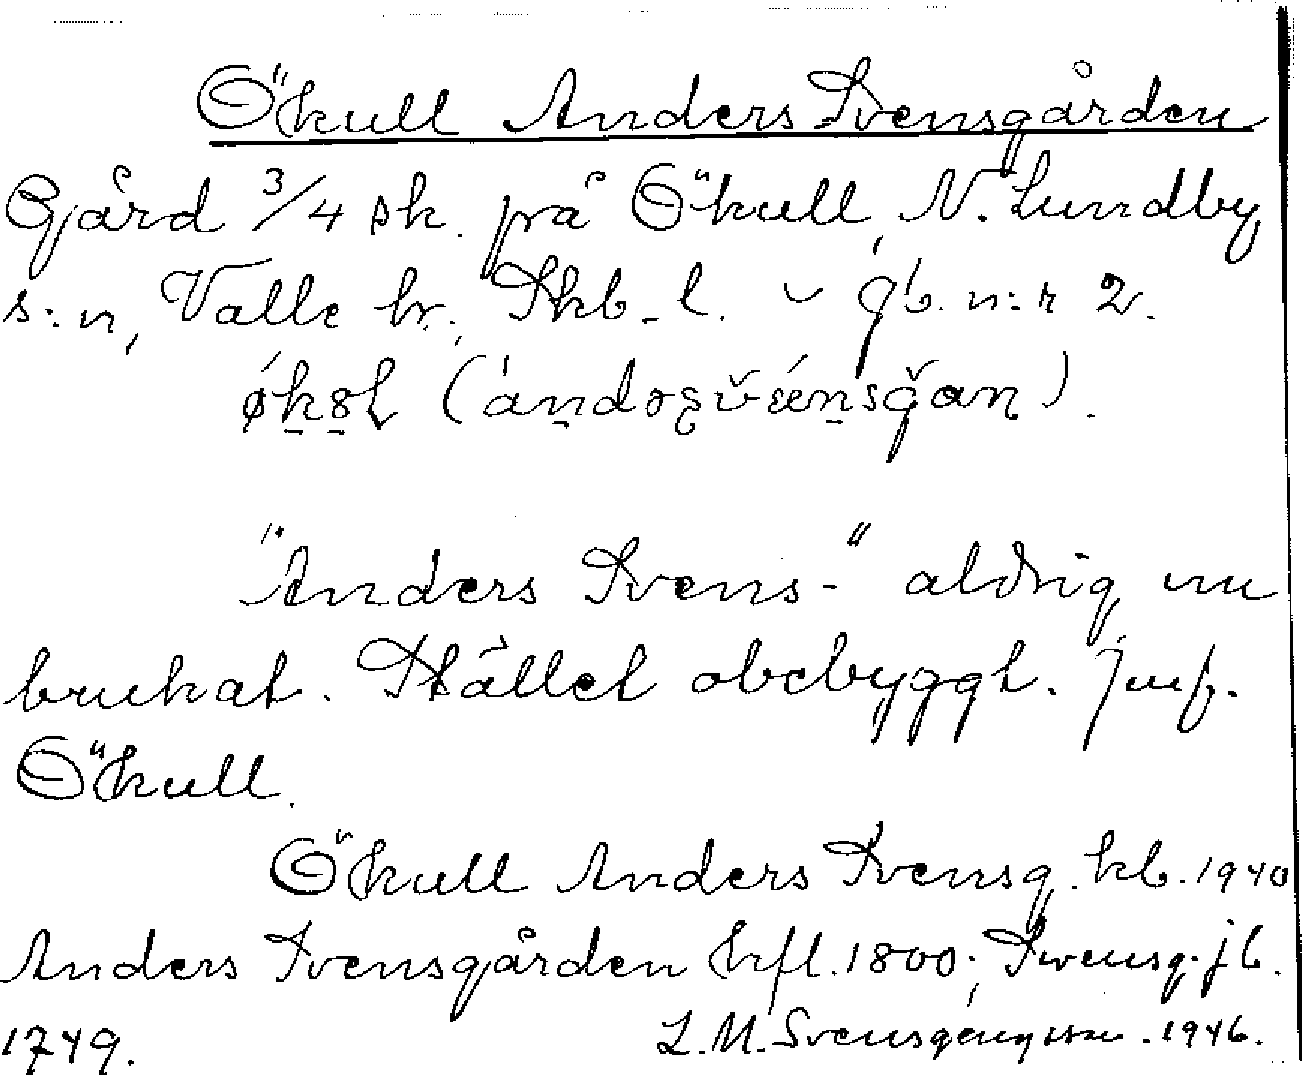 Ökull Anders Svensgården
Gård 3/4 sk. på Ökull, N. Lundby
s:n, Valle hr, Skb. l. gb. n:r 2.
"Anders Svens-" aldrig nu
brukat. Stället obebyggt. Jmf.
Ökull.
Ökull Anders Svensg. kb. 1940
Anders Svensgården hfl. 1800; Swensg. jb.
1749. L. M. Svensgengsson. 1946.